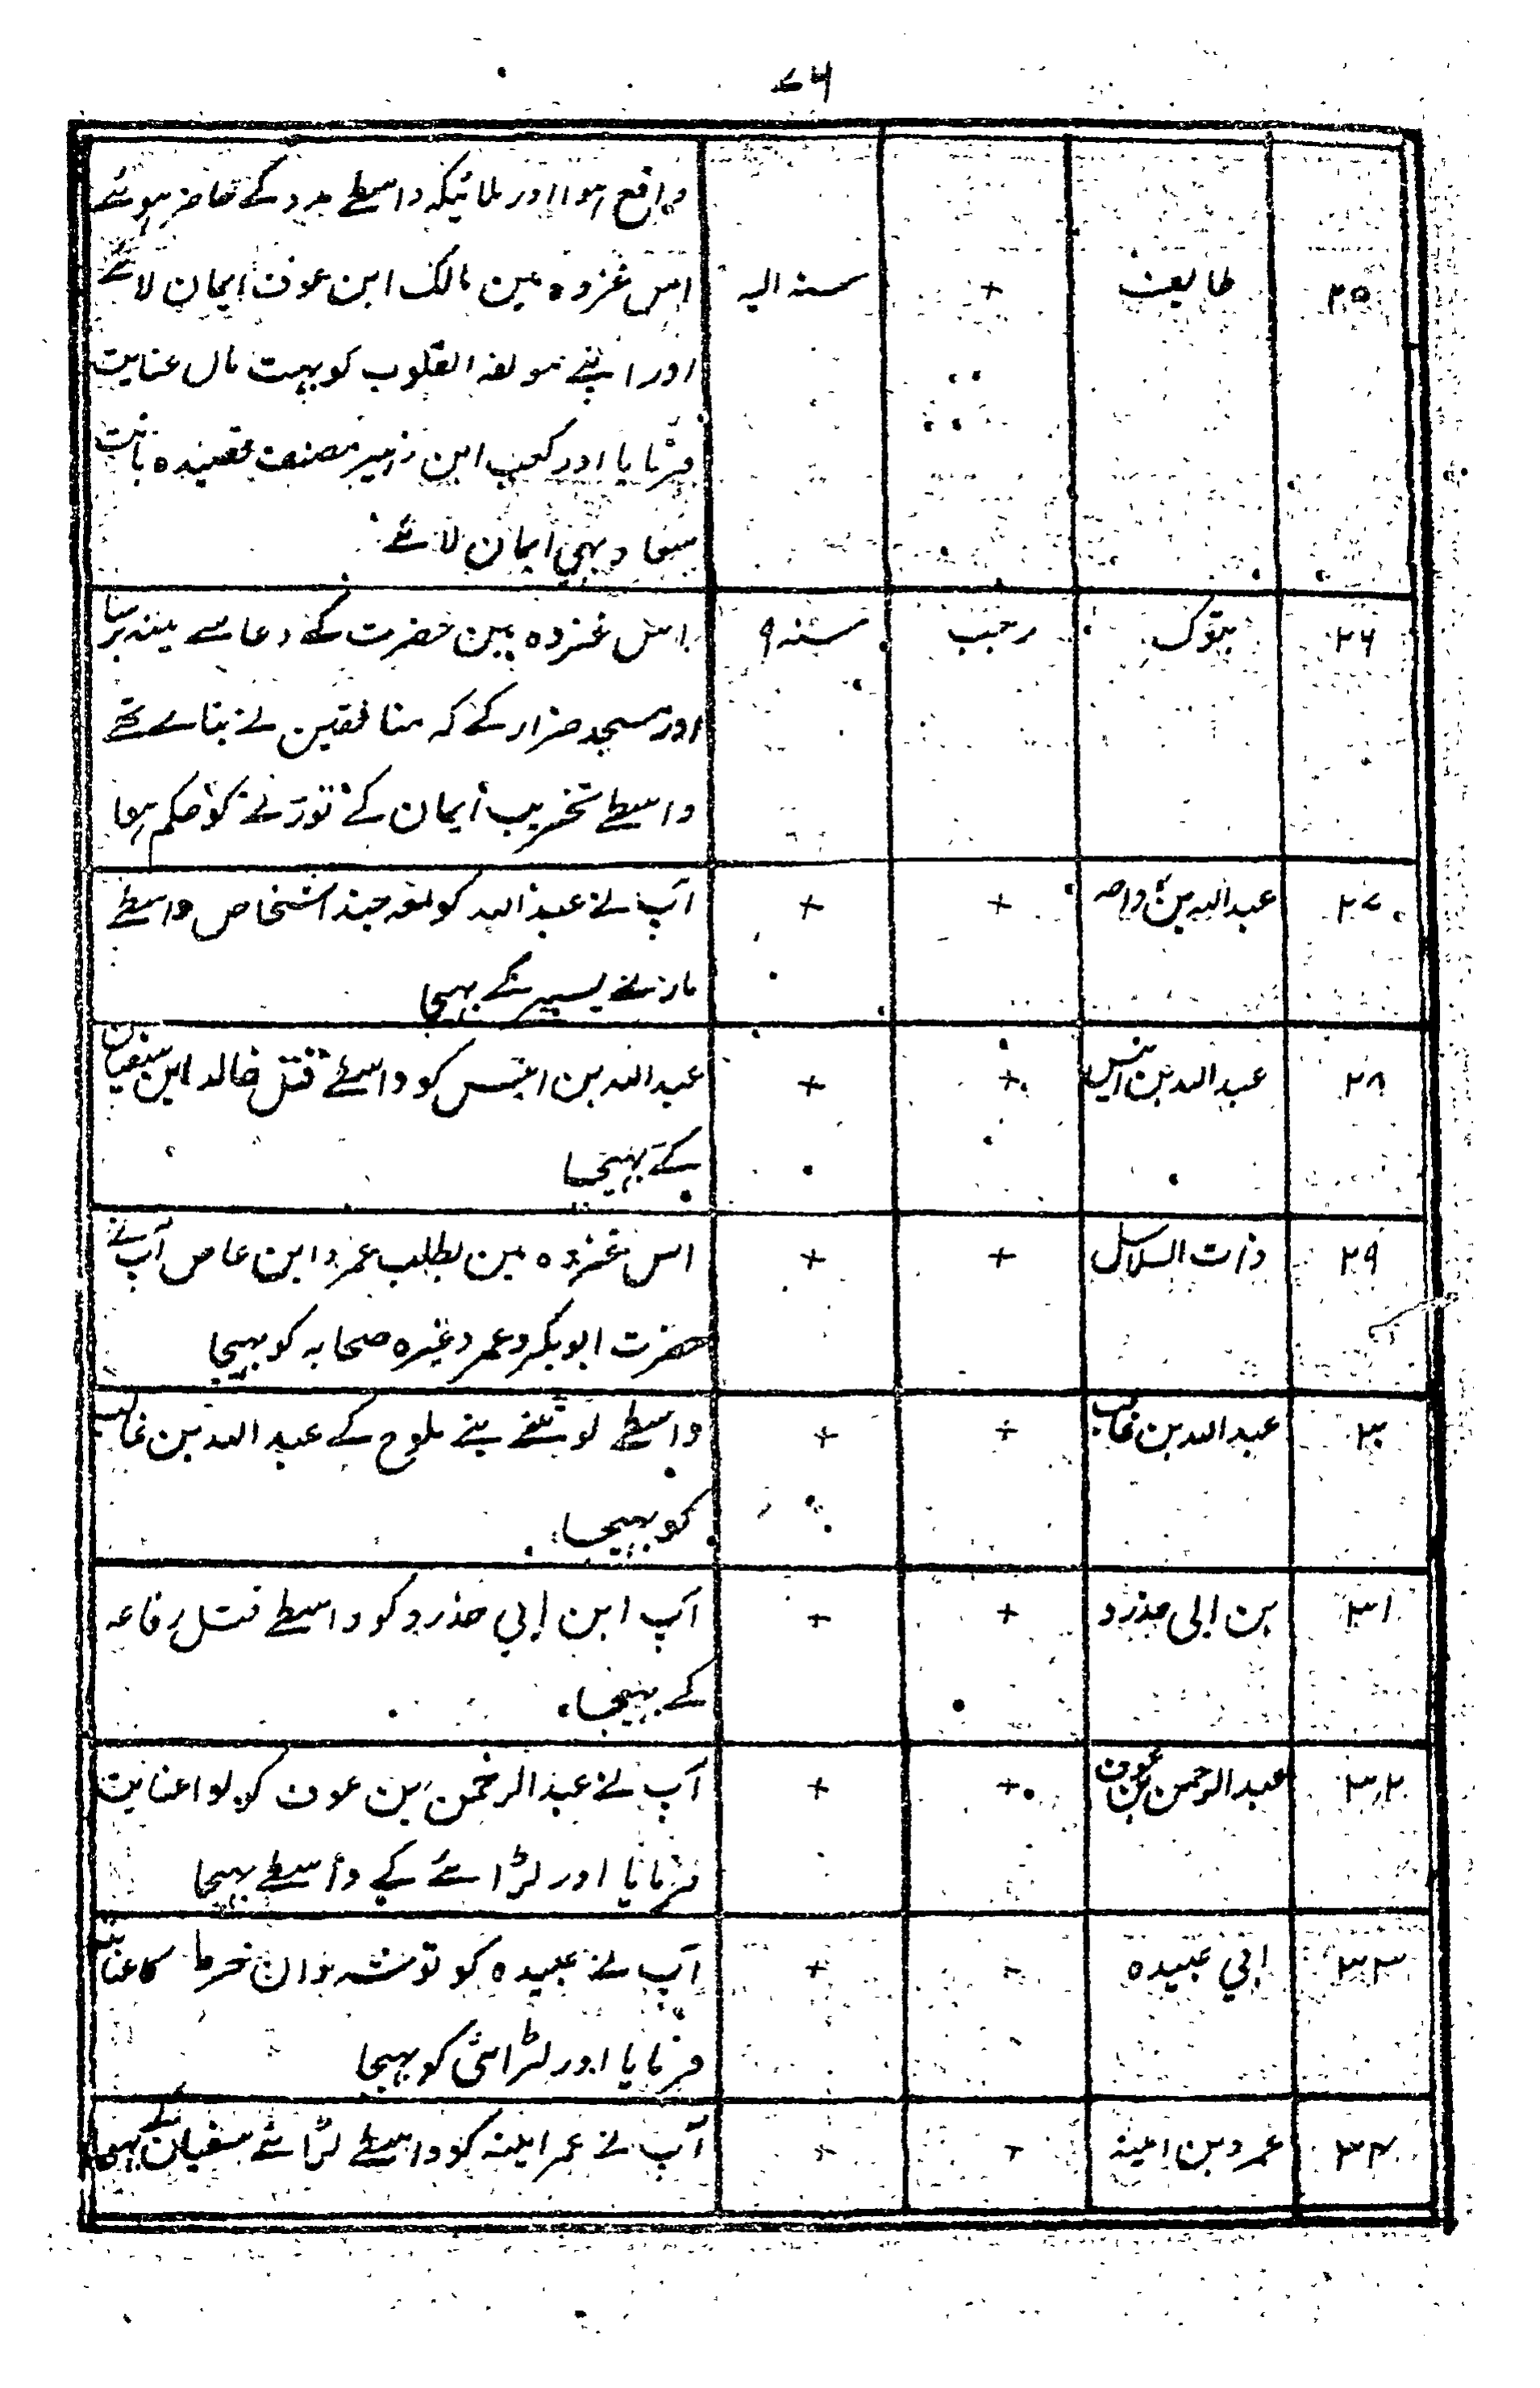 ۷۶
واقع ہوا اور ملائیکہ واسطے مدد کے حاضر ہوئے
۲۵ طایف + سنہ الیہ اس غزوہ مین مالک ابن عوف ایمان لائے
اور اپنے مولفہ القلوب کو بہت مال عنایت
فرمایا اور کعب ابن زہیر مصنف قصیدہ بانت
سعاد بہی ایمان لائے
۲۶ تبوک رجب سنہ ۹ اس غزوہ مین حضرت کے دعا سے مینہ برسا
اور مسجد ضرار کے کہ منافقین نے بنائے تھے
واسطے تخریب ایمان کے توڑنے کو حکم ہوا
۲۷ عبداللہ بن رواحہ + + آپ نے عبداللہ کو معہ چند اشخاص واسطے
مارنے یسیر کے بہیجا
۲۸ عبداللہ بن انیس + + عبداللہ بن انیس کو واسطے قتل خالد ابن سفیان
کے بہیجا
۲۹ ذات السلاسل + + اس غزوہ مین بطلب عمرو ابن عاص آپ نے
حضرت ابوبکر و عمر وغیرہ صحابہ کو بہیجا
۳۰ عبداللہ بن غالب + + واسطے لوٹنے بنے ملوح کے عبداللہ بن غالب
کو بہیجا
۳۱ بن ابی حذرد + + آپ ابن ابي حذرد کو واسطے قتل رفاعہ
کے بہیجا
۳۲ عبدالرحمن بن عوف + + آپ نے عبدالرحمن بن عوف کو لوا عنایت
فرمایا اور لڑائے کے واسطے بہیجا
۳۳ ابي عبیدہ + + آپ نے عبیدہ کو توشہ دان خرما کا عنایت
فرمایا اور لڑائی کو بہیجا
۳۴ عمرو بن امیہ + + آپ نے عمر امیہ کو واسطے لڑائے سفیان کے بہیجا